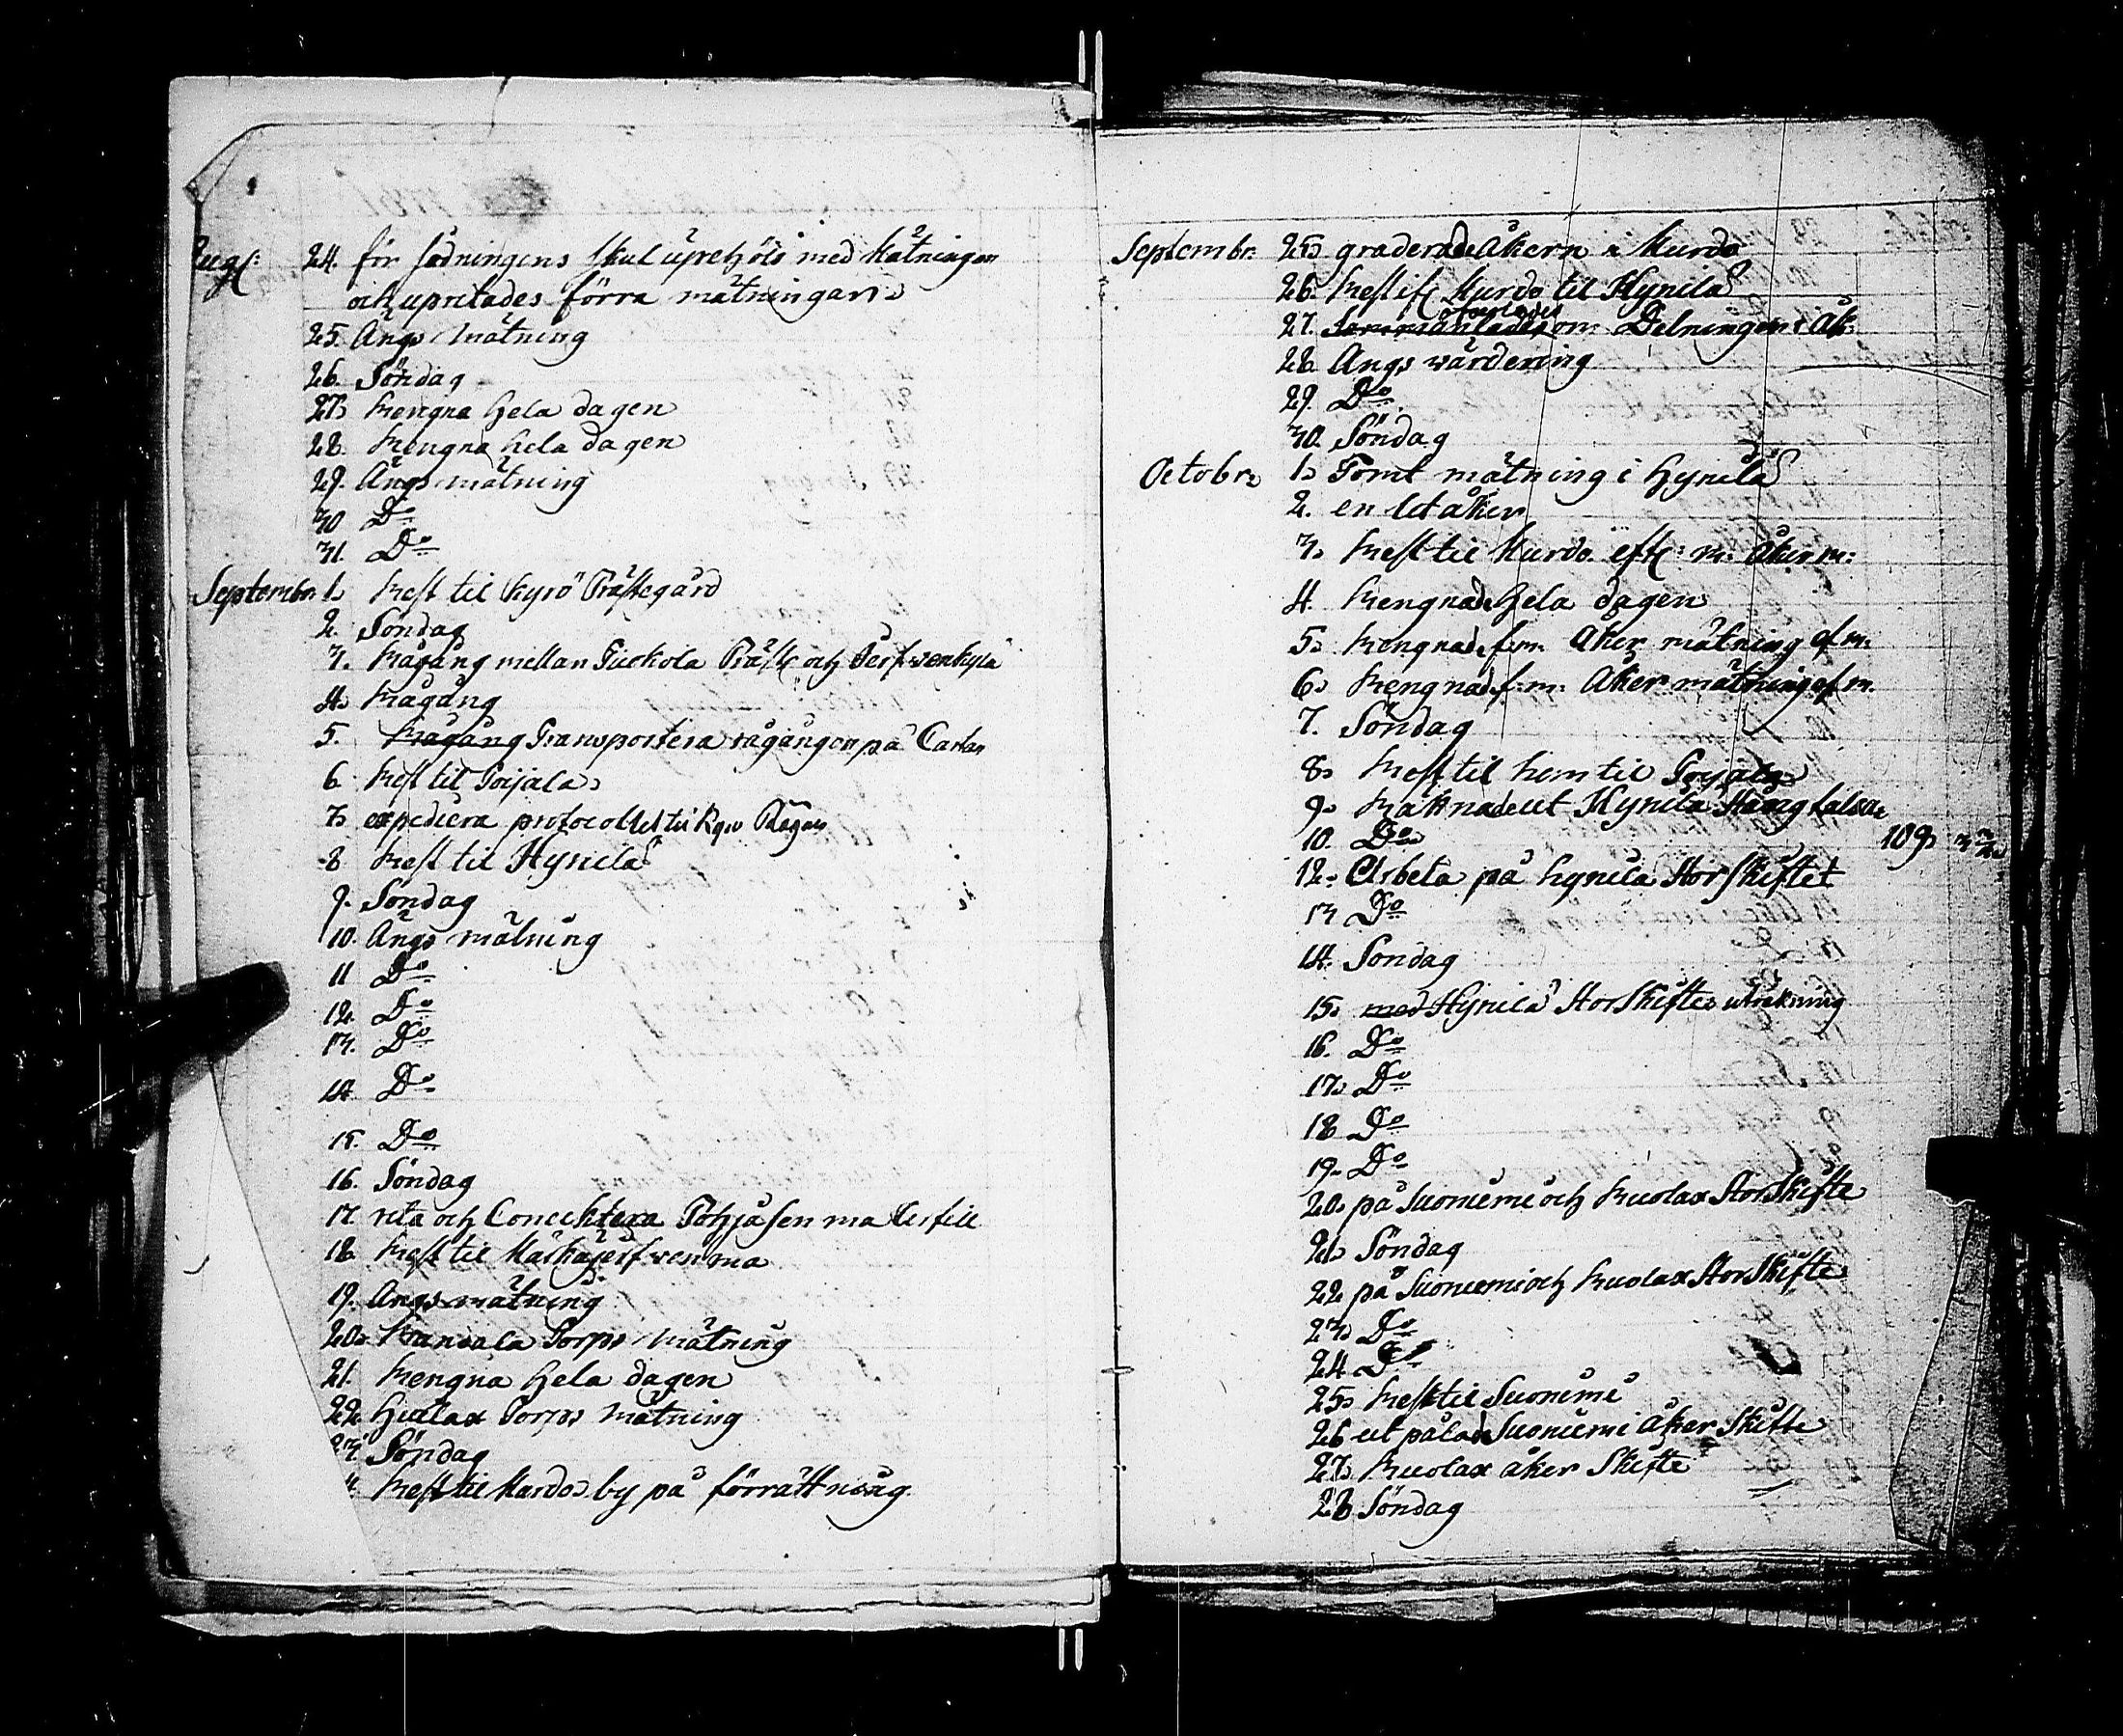 Aug: 24. för sådningens skul uprehöls med Mätningen
och upretades förra mätningar.
25. Ängs mätning
26. Söndag
27. Rengna hela dagen
28. Rengna hela dagen
29. Ängs mätning
30 Do
31. Do
Septembr. 1. Rest til Kyrö Prästegård
2. Söndag
3. Rågång mellan Präste och
4. Rågång
5. Rågång Transportera rågången på Cartan
6 Rest til Poijala
7. expediera protocollet til Rågån
8 Rest til Hynilä
9. Söndag
10. Ängs mätning
11 Do
12. Do
13. Do
14 Do
15. Do
16. Söndag
17. reta och Conechtera
18. Rest til
19. Ängs mätning
20. Torps Mätning
21. Rengna hela dagen
22. Torps Mätning
23. Söndag
Rest til Murdos by på förrättning.
Septembr. 25. graderade Åkern i Murdo
26. Rest if Murdo til Hynilä
27. om Delningen i Åk:
28. Ängs värdering
29. Do
30. Söndag
Octobr. 1. Tomt mätning i Hynilä
2. en åker
3. Rest til Murdo. eft: m: åker m:
4. Rengnade hela dagen
5. Rengnade f:m: Åker mätning ef m:
6. Rengnade f:m: Åker mätning ef m.
7. Söndag
8. Rest til hem til Poijala
9. Räknade ut Hynilä
10. Do 109
12. Arbeta på hynilä Storskiftet
13 Do
14. Söndag
15. med Hynilä Storskiftes utrekning
16. Do
17. Do
18 Do
19. Do
20. på Suoniemi och Kuolax Storskifte
21. Söndag
22 på Suoniemi och Kuolax Storskifte
23. Do
24. Do
25. Rest til Suoniemi
26 ut pålade Suoniemi åker Skifte
27. Kuolax åker Skifte
28 Söndag